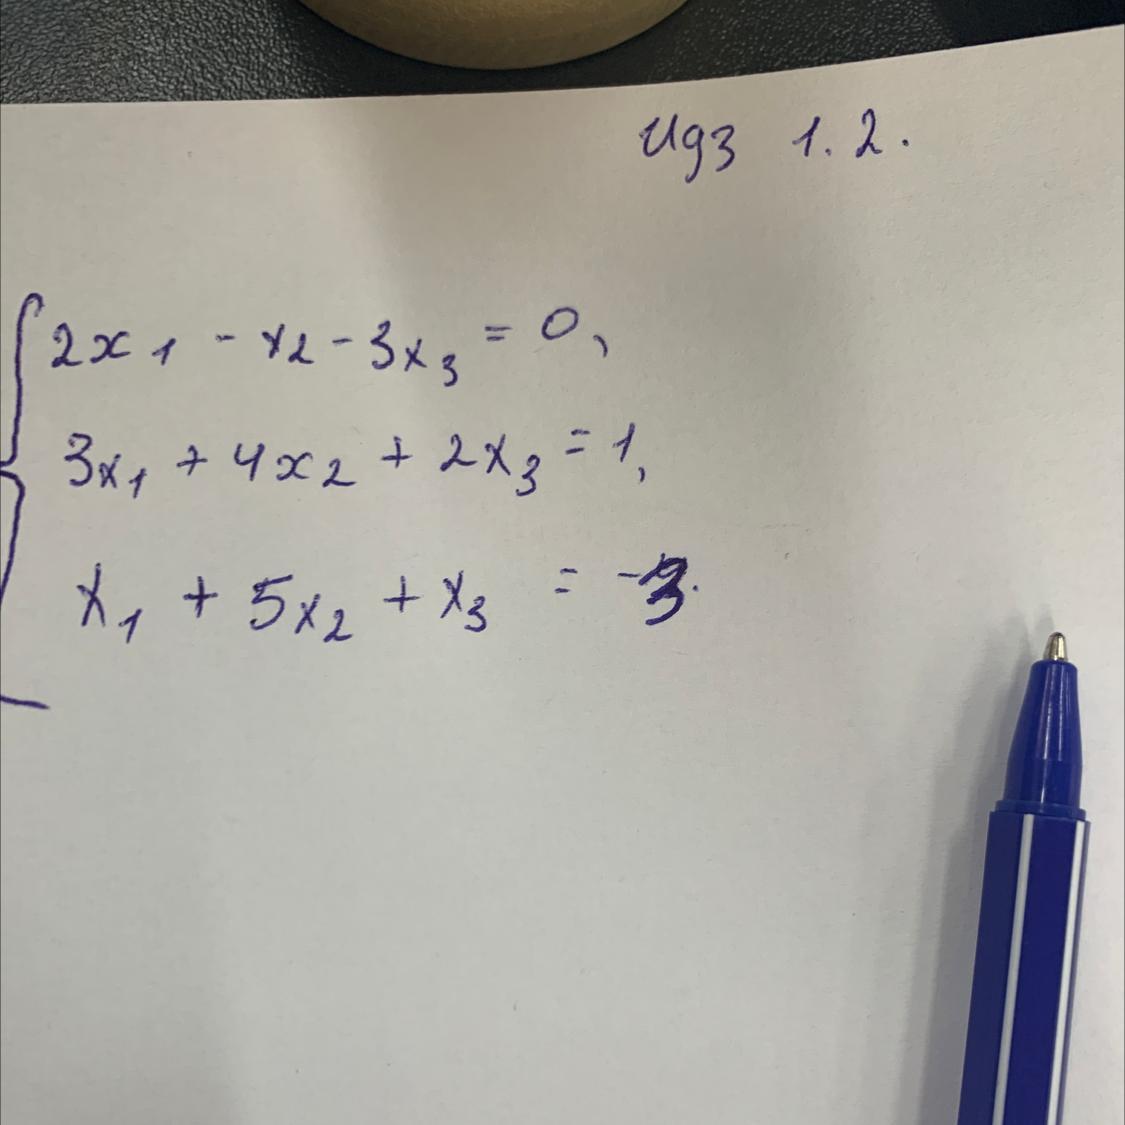 Идз 1.2.
2x₁ - x₂ - 3x₃ = 0,
3x₁ + 4x₂ + 2x₃ = 1,
x₁ + 5x₂ + x₃ = -3.